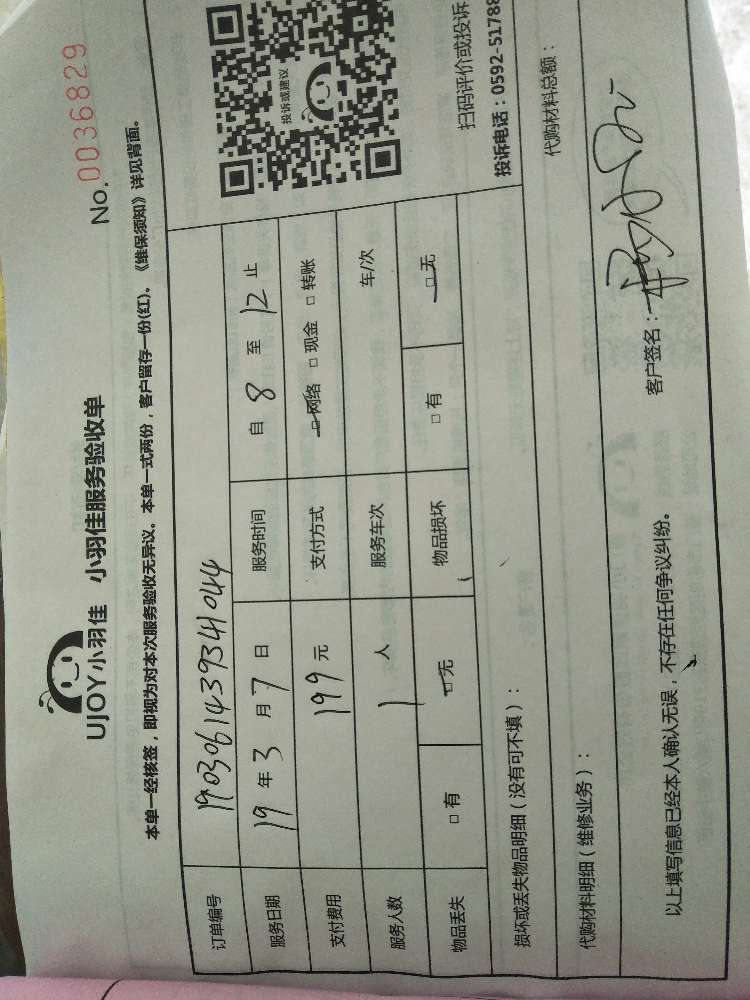 UJOY小羽佳 小羽佳服务验收单
No. 0036829
本单一经核签，即视为对本次服务验收无异议。本单一式两份，客户留存一份(红)。《维保须知》详见背面。
订单编号 1903061439341044
服务日期 19 年 3 月 7 日 服务时间 自 8 至 12 止
支付费用 199 元 支付方式 □ 网络 □ 现金 □ 转账
服务人数 1 人 服务车次 车/次
物品丢失 □ 有 □ 无 物品损坏 □ 有 □ 无
投诉或建议
扫码评价或投诉
投诉电话：0592-51788
损坏或丢失物品明细（没有可不填）：
代购材料明细（维修业务）：
代购材料总额：
以上填写信息已经本人确认无误，不存在任何争议纠纷。
客户签名：